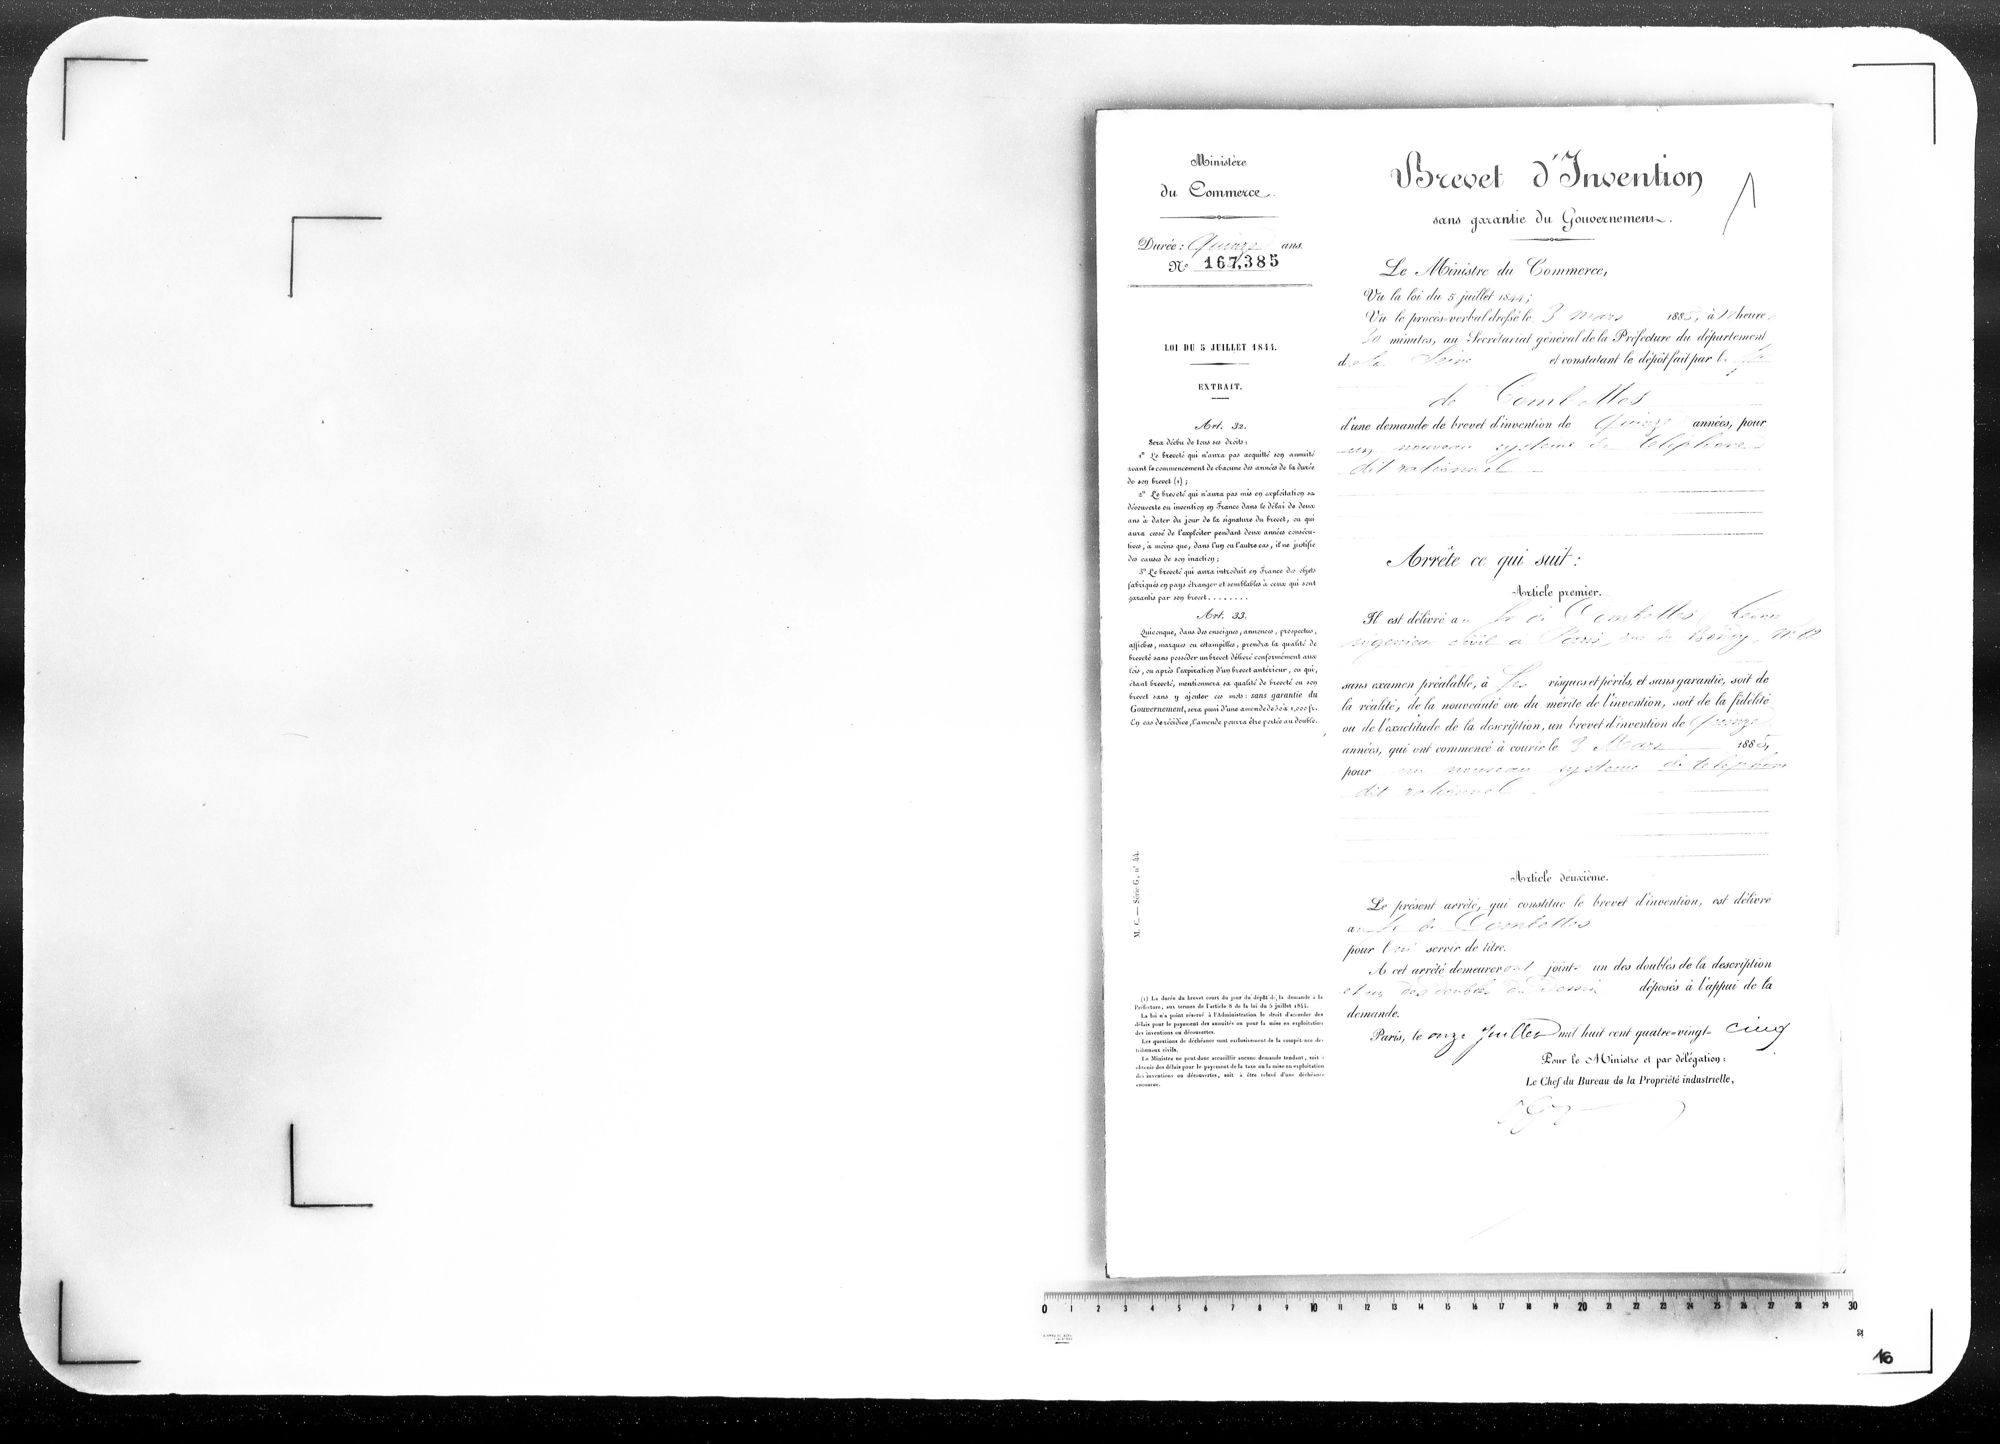 Ministère
du Commerce.
Durée : Quinze ans.
N° 167,385
LOI DU 5 JUILLET 1844.
EXTRAIT.
Art. 32.
Sera déchu de tous ses droits :
1° Le breveté qui n'aura pas acquitté son annuité
avant le commencement de chacune des années de la durée
de son brevet (1) ;
2° Le breveté qui n'aura pas mis en exploitation sa
découverte ou invention en France dans le délai de deux
ans à dater du jour de la signature du brevet, ou qui
aura cessé de l'exploiter pendant deux années consécu-
tives, à moins que, dans l'un ou l'autre cas, il ne justifie
des causes de son inaction ;
3° Le breveté qui aura introduit en France des objets
fabriqués en pays étranger et semblables à ceux qui sont
garantis par son brevet........
Art. 33.
Quiconque, dans des enseignes, annonces, prospectus,
affiches, marques ou estampilles, prendra la qualité de
breveté sans posséder un brevet délivré conformément aux
lois, ou après l'expiration d'un brevet antérieur, ou qui,
étant breveté, mentionnera sa qualité de breveté ou son
brevet sans y ajouter ces mots : sans garantie du
Gouvernement, sera puni d'une amende de 50 à 1,000 fr.
En cas de récidive, l'amende pourra être portée au double.
M. C. — Série G, n° 44.
(1) La durée du brevet court du jour du dépôt de la demande à la
Préfecture, aux termes de l'article 8 de la loi du 5 juillet 1844.
La loi n'a point réservé à l'Administration le droit d'accorder des
délais pour le payement des annuités ou pour la mise en exploitation
des inventions ou découvertes.
Les questions de déchéance sont exclusivement de la compétence des
tribunaux civils.
Le Ministre ne peut donc accueillir aucune demande tendant, soit à
obtenir des délais pour le payement de la taxe ou la mise en exploitation
des inventions ou découvertes, soit à être relevé d'une déchéance
encourue.
Brevet d'Invention
sans garantie du Gouvernement.
Le Ministre du Commerce,
Vu la loi du 5 juillet 1844 ;
Vu le procès-verbal dressé le 3 mars 1885, à heure
minutes, au Secrétariat général de la Préfecture du département
de la Seine et constatant le dépôt fait par l
de Combettes
d'une demande de brevet d'invention de Quinze années, pour
un nouveau système de téléphone
dit rationnel
Arrête ce qui suit :
Article premier.
Il est délivré au Sr de Combettes, Léon
ingénieur civil à Paris, rue de Bondy, N°
sans examen préalable, à ses risques et périls, et sans garantie, soit de
la réalité, de la nouveauté ou du mérite de l'invention, soit de la fidélité
ou de l'exactitude de la description, un brevet d'invention de Quinze
années, qui ont commencé à courir le 3 Mars 1885,
pour un nouveau système de téléphone
dit rationnel
Article deuxième.
Le présent arrêté, qui constitue le brevet d'invention, est délivré
au Sr de Combettes
pour lui servir de titre.
A cet arrêté demeureront joints un des doubles de la description
et un des doubles du dessin déposés à l'appui de la
demande.
Paris, le onze Juillet mil huit cent quatre-vingt- cinq
Pour le Ministre et par délégation :
Le Chef du Bureau de la Propriété industrielle,
0 1 2 3 4 5 6 7 8 9 10 11 12 13 14 15 16 17 18 19 20 21 22 23 24 25 26 27 28 29 30
16